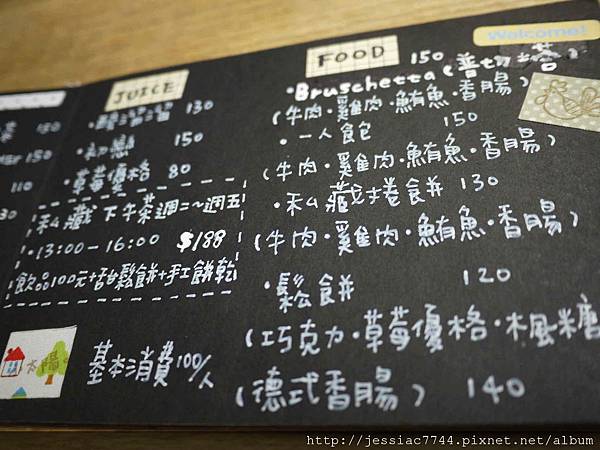 150
150
110
30
JUICE
130
・初戀 150
・草莓優格 80
私藏下午茶週二~週五
・13:00-16:00 $188
飲品100元+甜鬆餅+手工餅乾
太陽
基本消費100/人
Welcome!
FOOD
・Bruschetta(普切塔) 150
(牛肉・雞肉・鮪魚・香腸)
・一人食包 150
(牛肉・雞肉・鮪魚・香腸)
・私藏捲食餅 130
(牛肉・雞肉・鮪魚・香腸)
・鬆餅 120
(巧克力・草莓優格・楓糖
(德式香腸) 140
http://jessiac7744.pixnet.net/album